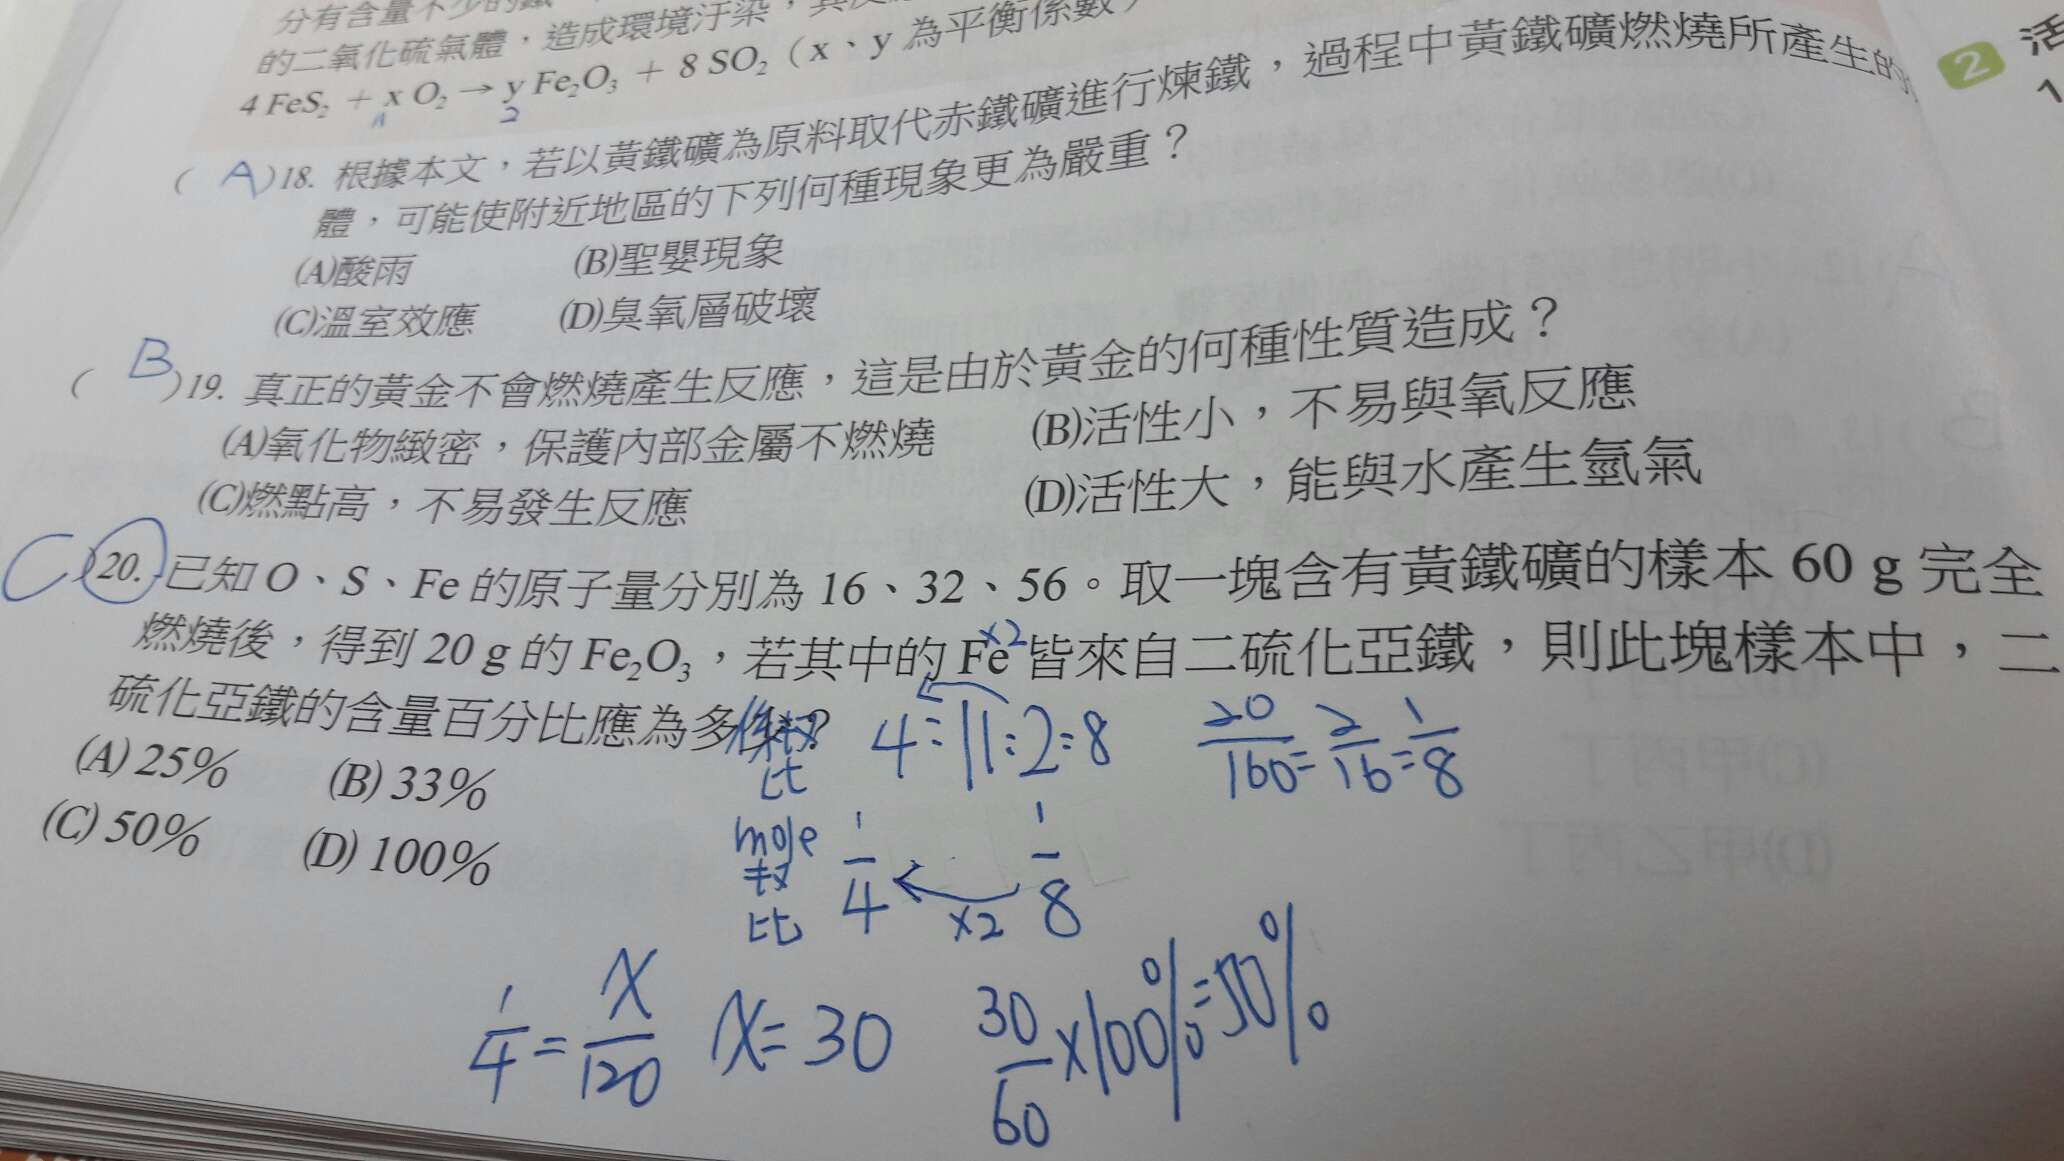 分有含量不少的鐵
的二氧化硫氣體,造成環境汙染,其反
4 FeS₂ + x O₂ → y Fe₂O₃ + 8 SO₂(x、y 為平衡係數)
2
( A )18. 根據本文,若以黃鐵礦為原料取代赤鐵礦進行煉鐵,過程中黃鐵礦燃燒所產生的
體,可能使附近地區的下列何種現象更為嚴重?
(A)酸雨 (B)聖嬰現象
(C)溫室效應 (D)臭氧層破壞
( B )19. 真正的黃金不會燃燒產生反應,這是由於黃金的何種性質造成?
(A)氧化物緻密,保護內部金屬不燃燒 (B)活性小,不易與氧反應
(C)燃點高,不易發生反應 (D)活性大,能與水產生氫氣
C )20. 已知 O、S、Fe 的原子量分別為 16、32、56。取一塊含有黃鐵礦的樣本 60 g 完全
×2
燃燒後,得到 20 g 的 Fe₂O₃,若其中的 Fe 皆來自二硫化亞鐵,則此塊樣本中,二
硫化亞鐵的含量百分比應為多少?
(A) 25% (B) 33%
(C) 50% (D) 100%
係数比 4:11:2:8 20/160=2/16=1/8
mole数比 1/4 ×2 1/8
1/4=x/120 x=30 30/60×100%=50%
2 活
1